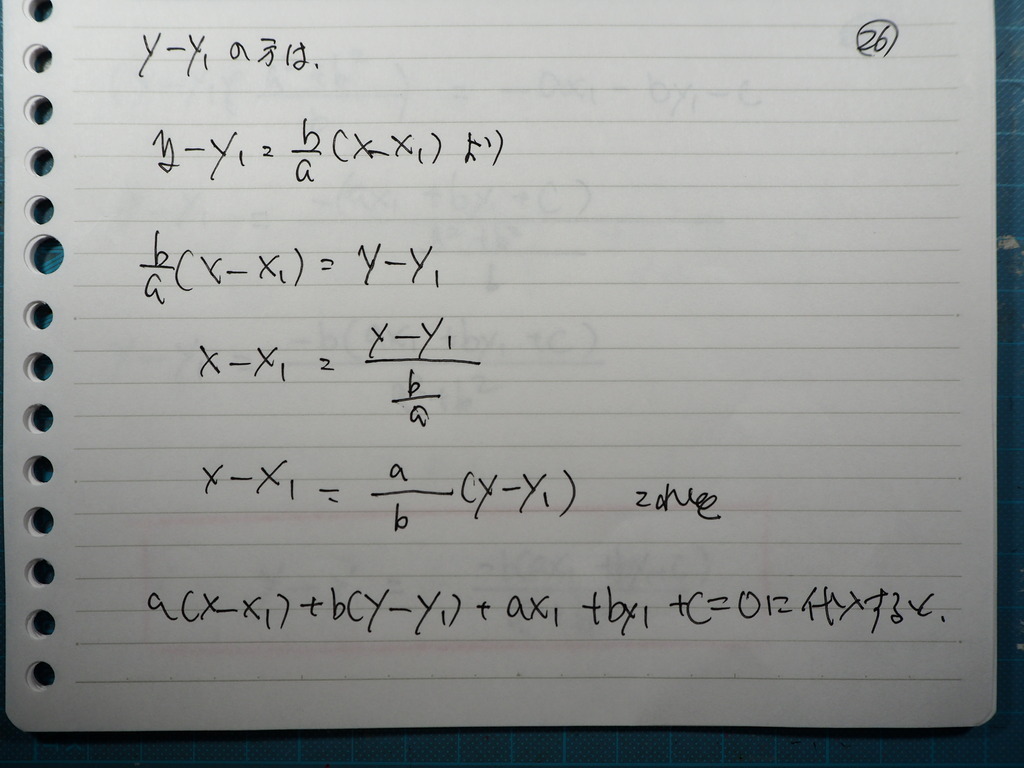 ㉖
y-y₁の方は、
y-y₁=b/a(x-x₁)より
b/a(x-x₁)=y-y₁
x-x₁=(y-y₁)/(b/a)
x-x₁=a/b(y-y₁) これを
a(x-x₁)+b(y-y₁)+ax₁+by₁+c=0に代入すると、